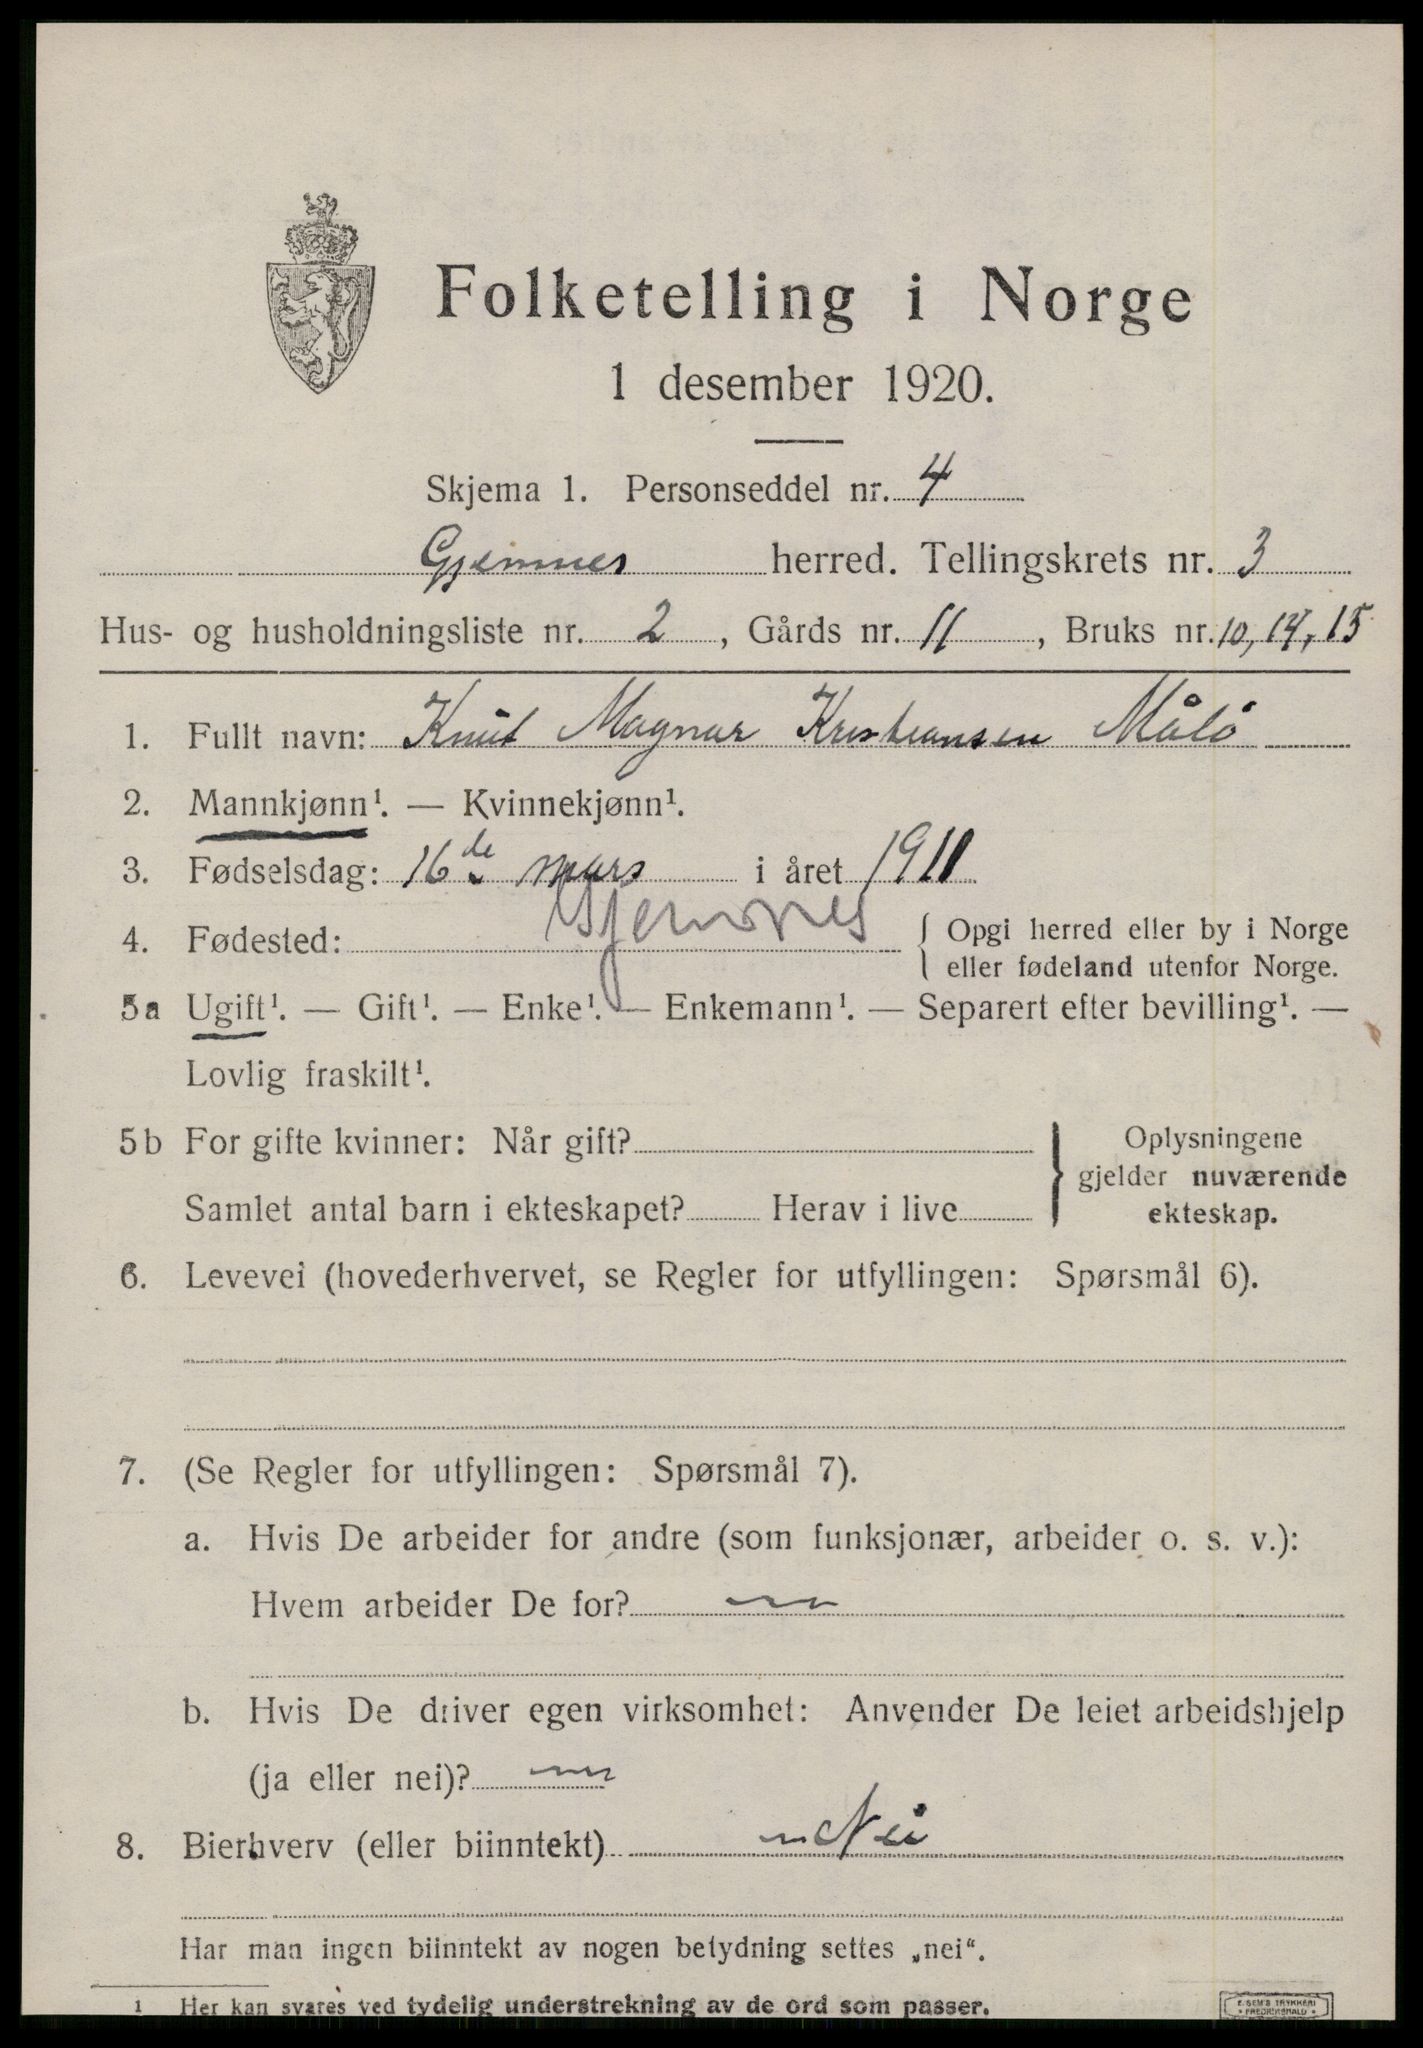 Folketelling i Norge
1 desember 1920.
Skjema 1. Personseddel nr. 4
Gjemnes herred. Tellingskrets nr. 3
Hus- og husholdningsliste nr. 2, Gårds nr. 11, Bruks nr. 10, 14, 15
1. Fullt navn: Knut Magnar Kristiansen Målö
2. Mannkjønn¹. — Kvinnekjønn¹.
3. Fødselsdag: 16de mars i året 1911
4. Fødested: Gjemnes { Opgi herred eller by i Norge
eller fødeland utenfor Norge.
5a Ugift¹. — Gift¹. — Enke¹. — Enkemann¹. — Separert efter bevilling¹. —
Lovlig fraskilt¹.
5b For gifte kvinner: Når gift? } Oplysningene
gjelder nuværende
Samlet antal barn i ekteskapet? Herav i live ekteskap.
6. Levevei (hovederhvervet, se Regler for utfyllingen: Spørsmål 6).
7. (Se Regler for utfyllingen: Spørsmål 7).
a. Hvis De arbeider for andre (som funksjonær, arbeider o. s. v.):
Hvem arbeider De for?
b. Hvis De driver egen virksomhet: Anvender De leiet arbeidshjelp
(ja eller nei)?
8. Bierhverv (eller biinntekt) Nei
Har man ingen biinntekt av nogen betydning settes „nei“.
¹ Her kan svares ved tydelig understrekning av de ord som passer.
E. SEM'S TRYKKERI
FREDRIKSHALD